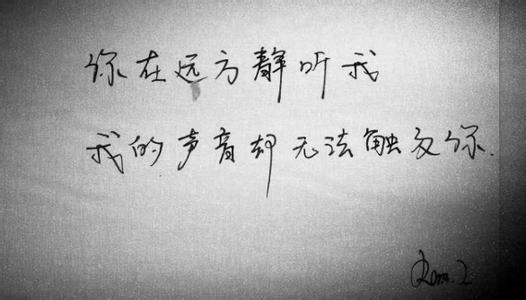 你在远方静听我
我的声音却无法触及你.